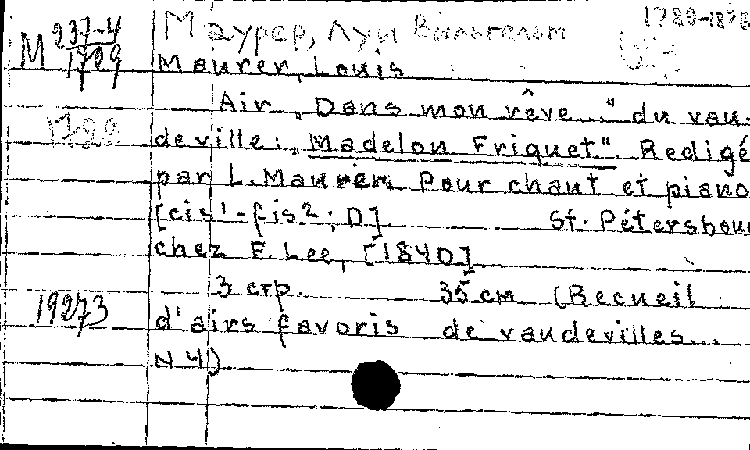 М 237-4 / 1729
Маурер, Луи Вильгельм
1789-1878
Maurer, Louis
Air „Dans mon rêve..." du vau-
deville: „Madelon Friquet". Redigé
par L. Maurer. Pour chant et piano
[cis¹-fis²; D] St. Pétersbour
chez F. Lee, [1840]
3 стр. 35 см (Recueil
19273
d'airs favoris de vaudevilles...
N 4)